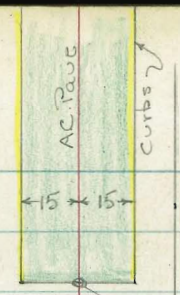 AC. Pave
Curbs
15 15